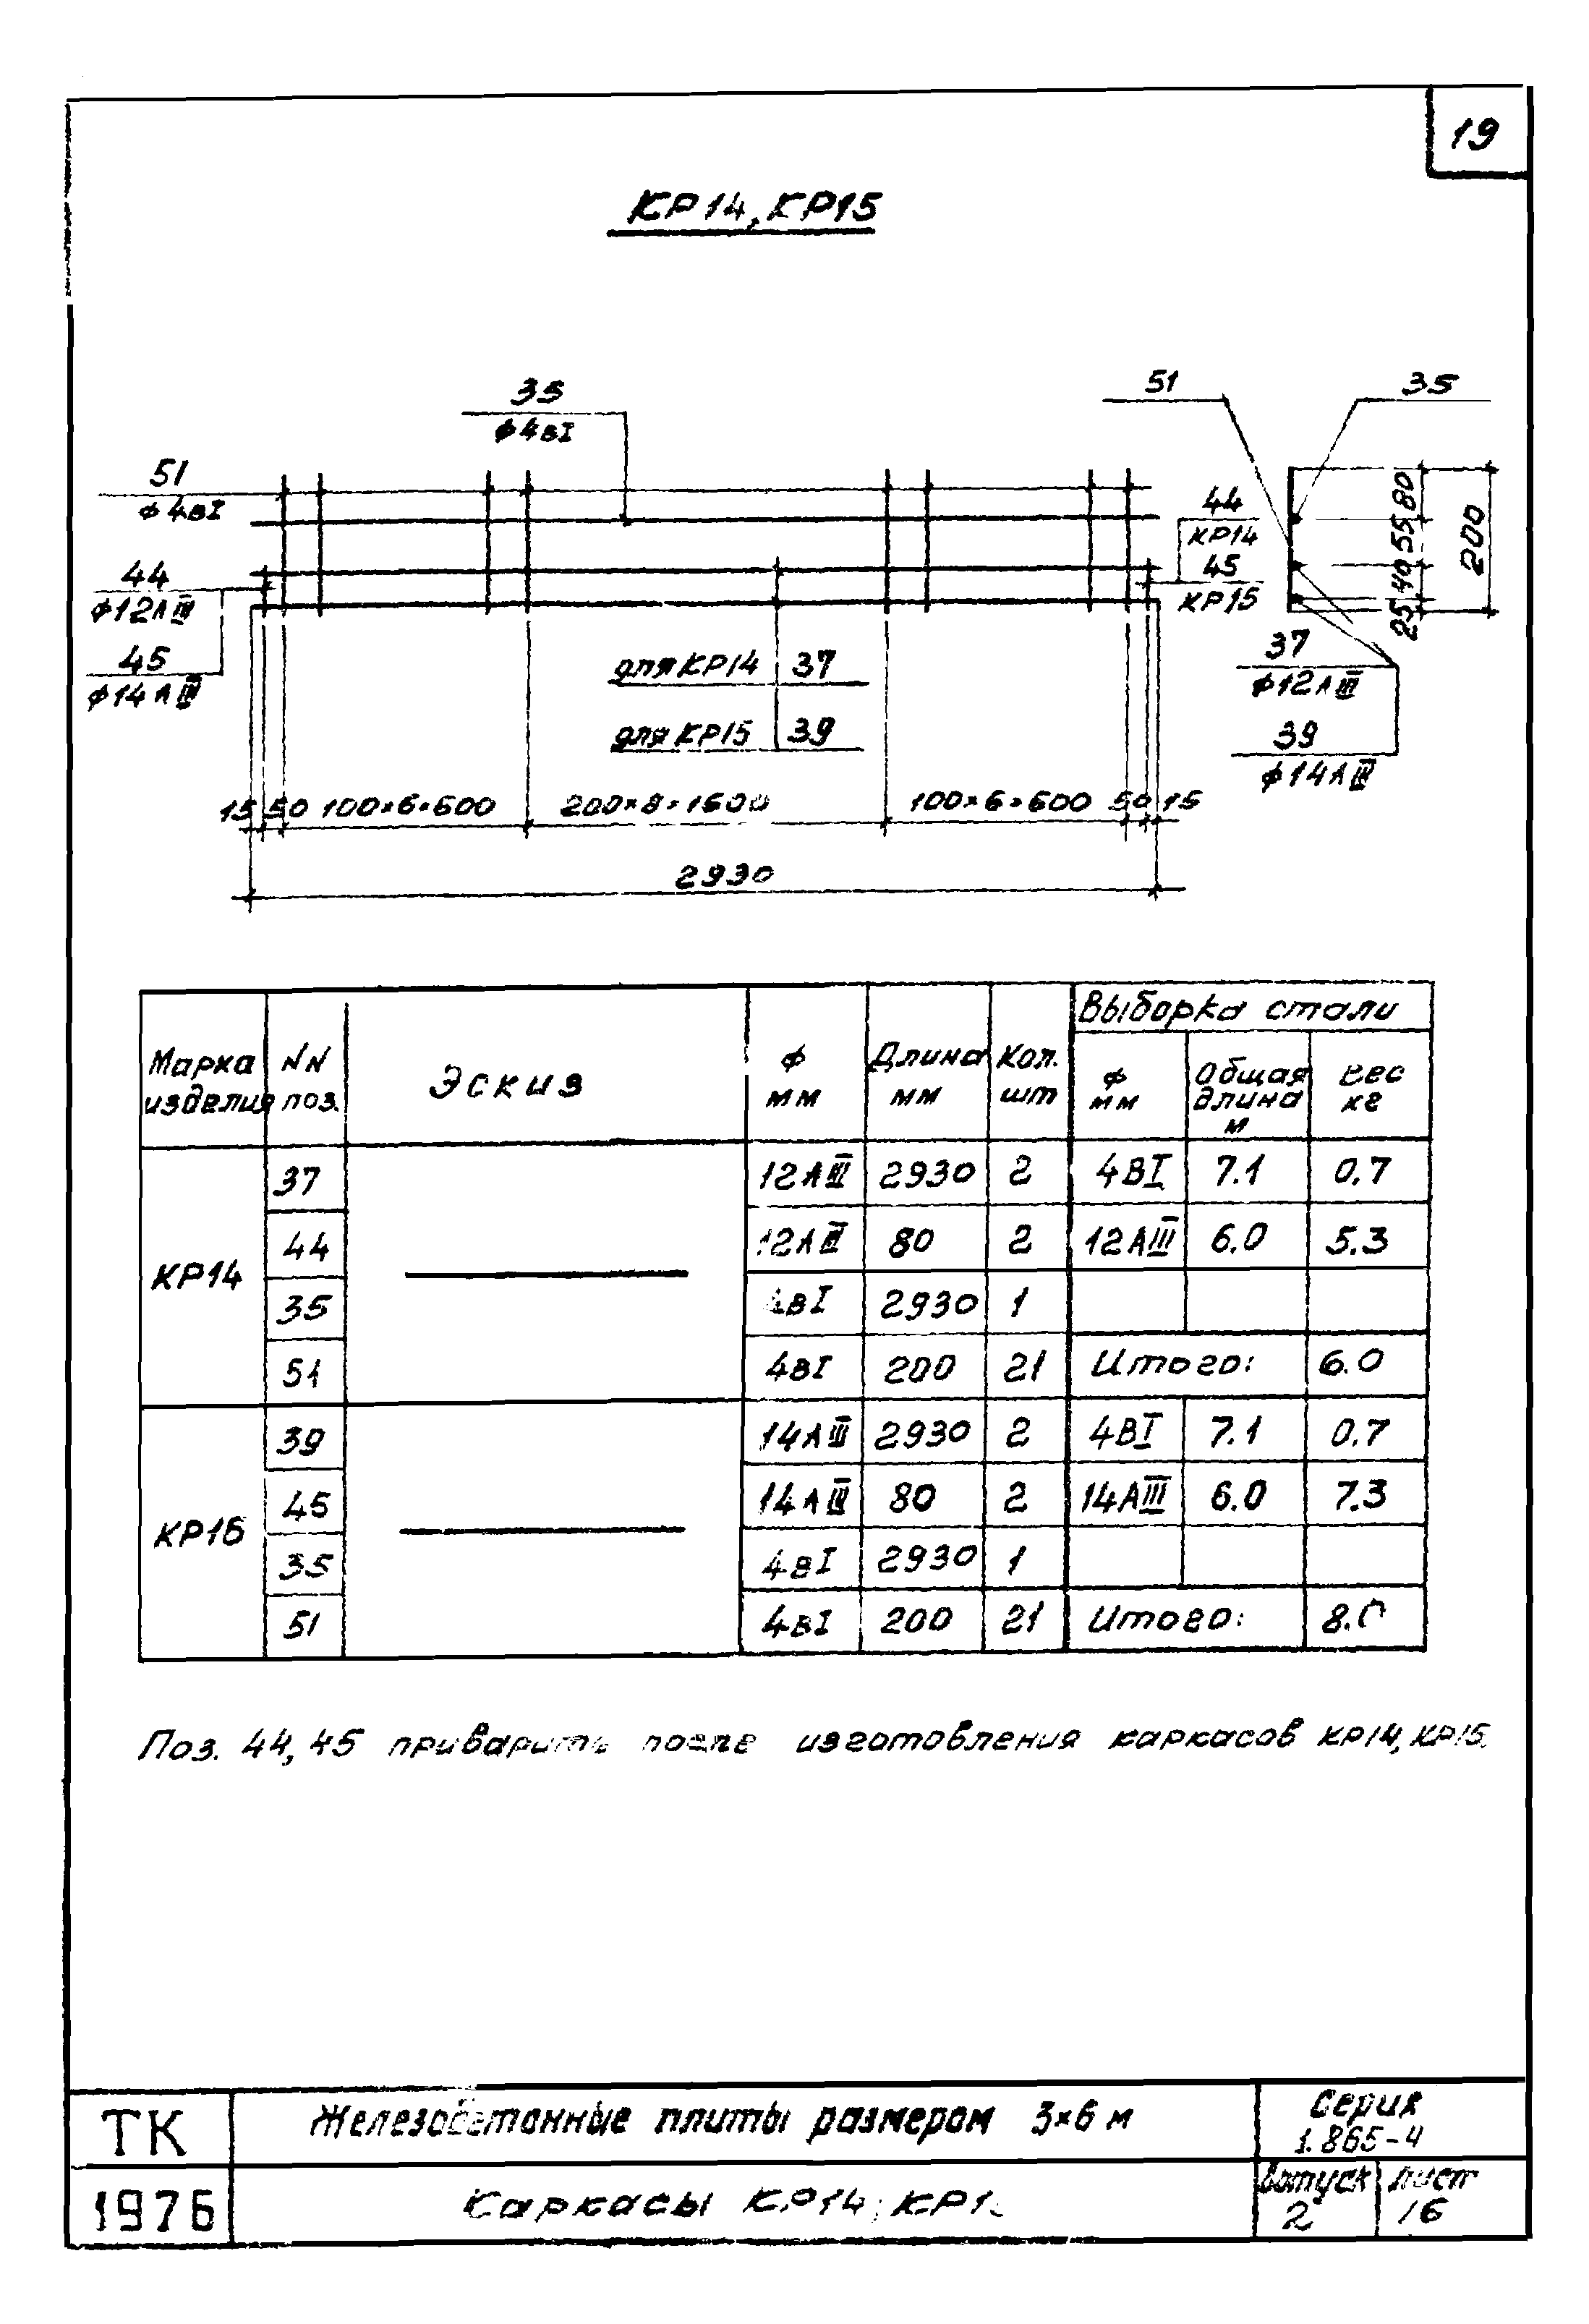 19
КР14, КР15
35
ф4вI
51
ф4вI
44
ф12АIII
45
ф14АIII
44
КР14
45
КР15
для КР14 37
для КР15 39
15 50 100×6=600 200×8=1600 100×6=600 50 15
2930
51
35
80
55
40
25
200
37
ф12АIII
39
ф14АIII
Марка изделия NN поз. Эскиз ф мм Длина мм Кол. шт Выборка стали
ф мм Общая длина м Вес кг
КР14
37 12АIII 2930 2 4ВI 7.1 0.7
44 12АIII 80 2 12АIII 6.0 5.3
35 4вI 2930 1
51 4вI 200 21 Итого: 6.0
КР15
39 14АIII 2930 2 4ВI 7.1 0.7
45 14АIII 80 2 14АIII 6.0 7.3
35 4вI 2930 1
51 4вI 200 21 Итого: 8.0
Поз. 44, 45 приварить после изготовления каркасов КР14, КР15.
ТК Железобетонные плиты размером 3×6 м Серия
1.865-4
1976 Каркасы КР14; КР1
Выпуск 2
Лист 16